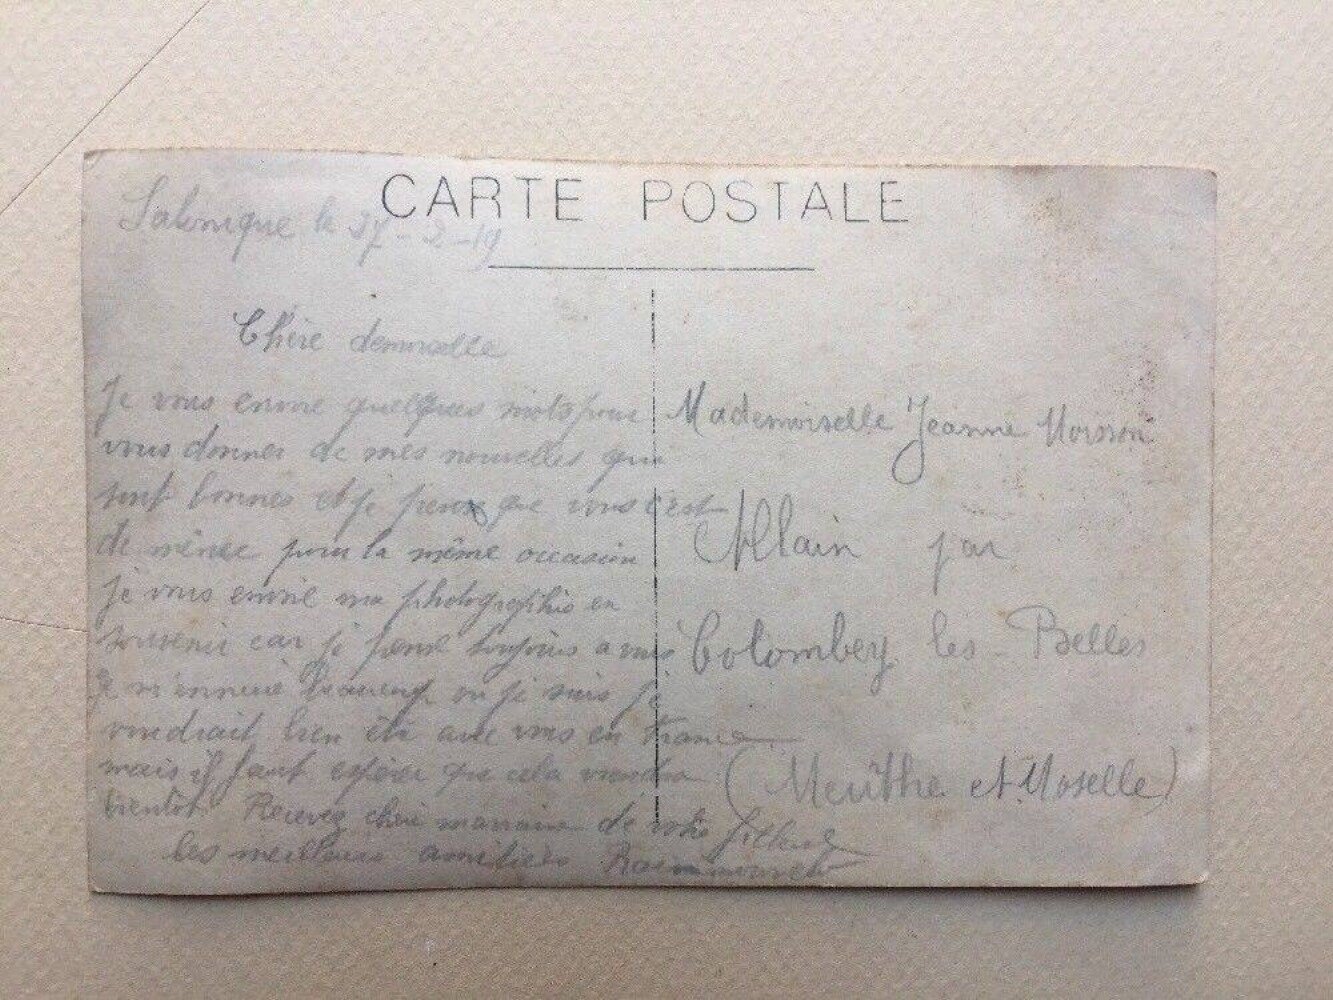 CARTE POSTALE
Salonique le 27-2-19
Chère demoiselle
Je vous envoie quelques mots pour
vous donner de mes nouvelles qui
sont bonnes et je pense que vous c'est
de même pour la même occasion
je vous envoie ma photographie en
souvenir car je pense toujours a vous
m'ennuie beaucoup ou je suis je
voudrait bien être avec vous en France
mais il faut espérer que cela viendra
bientot Recevez chère marraine de votre filleul
les meilleurs amitiés
Mademoiselle Jeanne Moisson
Allain par
Colombey les-Belles
(Meurthe et Moselle)